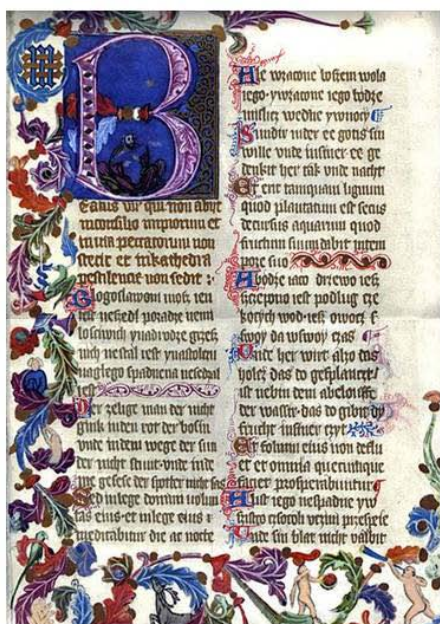 Beatus vir qui non abiit
in consilio impiorum et
in via peccatorum non
stetit et in kathedra
pestilencie non sedit :
Bogoslawoni mosz ien
iest ne szedl po radze nemi
losciwich y na drodze grzesz
nich ne stal iest y na stolcu
naglego spadnena ne sedzal
iest
Der zelige man der nicht
gink in den rot der bosin
vnde in dem wege der sun
der nicht stunt vnde in de
me gesese der spotter nicht sas
Sed in lege domini volun
tas eius et in lege eius
meditabitur die ac nocte
Ale w zacone boszem wola
iego y w zacone iego bodze
mislicz we dne y w nocy
Sundir in der ee gotis sin
wille vnde in siner ee ge
denkit her tak vnde nacht
Et erit tamquam lignum
quod plantatum est secus
decursus aquarum quod
fructum suum dabit in tem
pore suo
A bodze iaco drzewo iesz
szczepono iest podlug cze
kocych wod iesz owocz
swoy da w swoy czas
Vnde her wirt alzo das
holcz das do gesplanczet
ist nebin dem abelouffe
der wasser das do gibit dy
frucht in siner czyt
Et folium eius non deflu
et et omnia quecumque
faciet prosperabuntur
A list iego ne spadne y w
szistko czsokoli vczini przespeie
Vnde sin blat nicht valbit